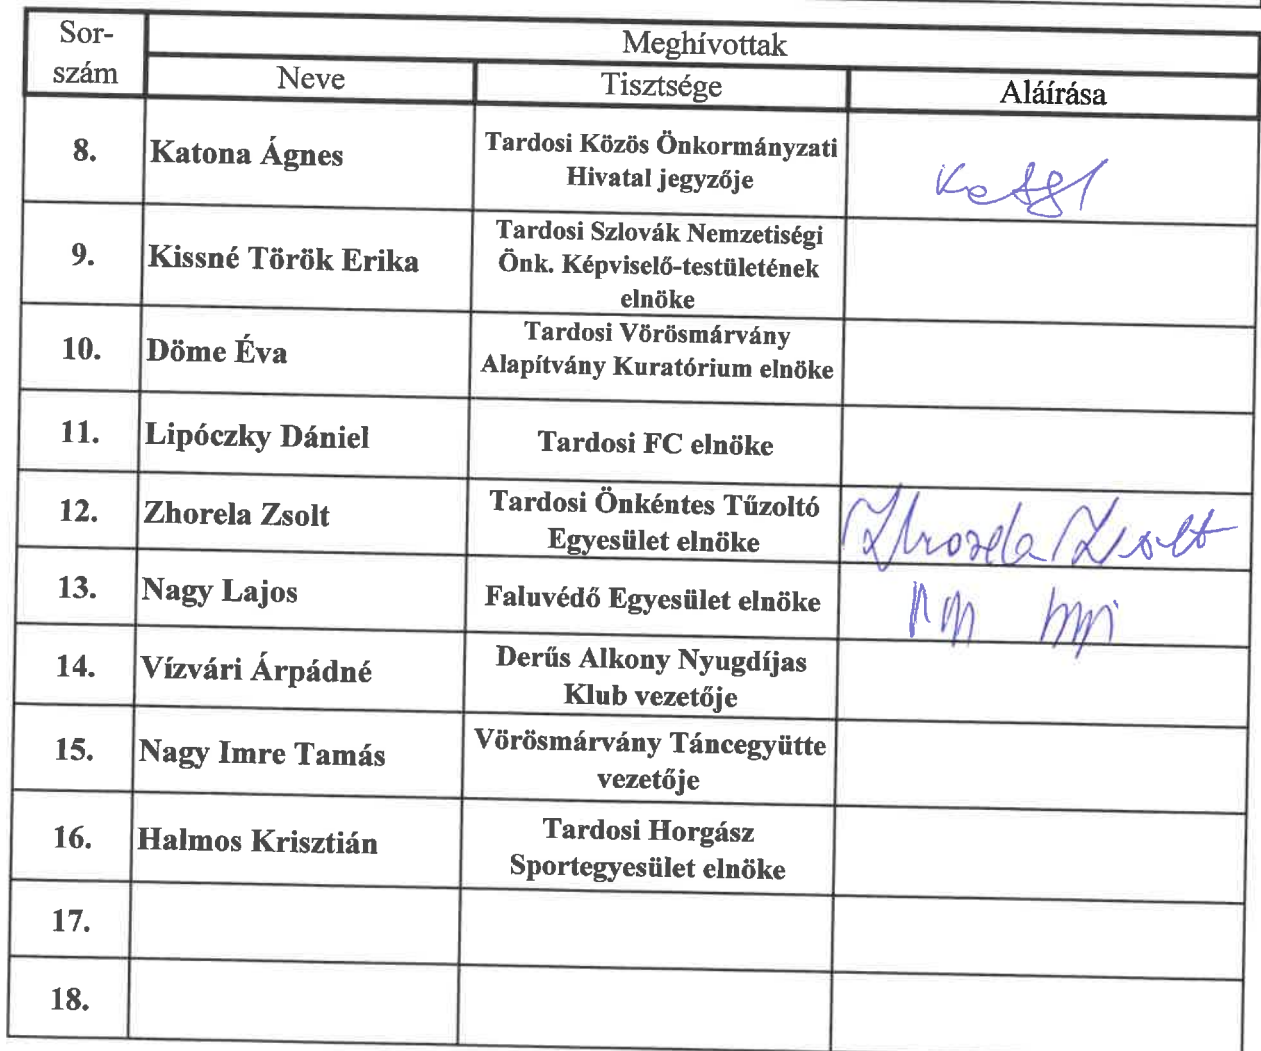 Sor-
szám
Meghívottak
Neve
Tisztsége
Aláírása
8.
Katona Ágnes
Tardosi Közös Önkormányzati
Hivatal jegyzője
9.
Kissné Török Erika
Tardosi Szlovák Nemzetiségi
Önk. Képviselő-testületének
elnöke
10.
Döme Éva
Tardosi Vörösmárvány
Alapítvány Kuratórium elnöke
11.
Lipóczky Dániel
Tardosi FC elnöke
12.
Zhorela Zsolt
Tardosi Önkéntes Tűzoltó
Egyesület elnöke
Zhorela Zsolt
13.
Nagy Lajos
Faluvédő Egyesület elnöke
14.
Vízvári Árpádné
Derűs Alkony Nyugdíjas
Klub vezetője
15.
Nagy Imre Tamás
Vörösmárvány Táncegyütte
vezetője
16.
Halmos Krisztián
Tardosi Horgász
Sportegyesület elnöke
17.
18.